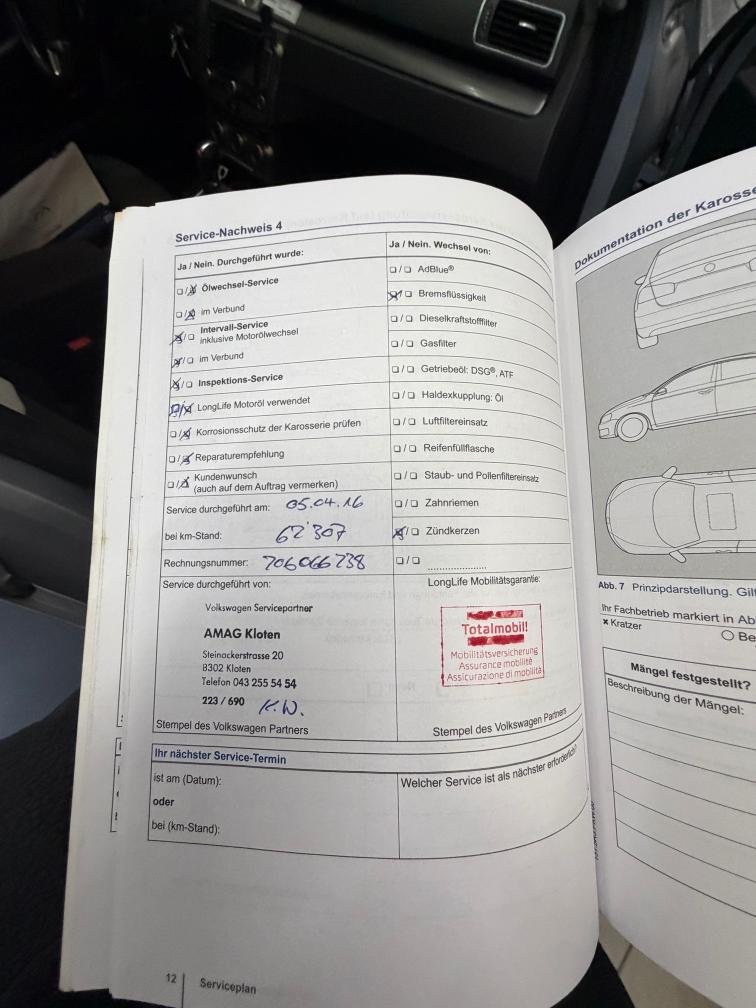 Service-Nachweis 4
Ja / Nein. Durchgeführt wurde:
❏/❏ Ölwechsel-Service
❏/❏ im Verbund
❏/❏ Intervall-Service
inklusive Motorölwechsel
❏/❏ im Verbund
❏/❏ Inspektions-Service
❏/❏ LongLife Motoröl verwendet
❏/❏ Korrosionsschutz der Karosserie prüfen
❏/❏ Reparaturempfehlung
❏/❏ Kundenwunsch
(auch auf dem Auftrag vermerken)
Service durchgeführt am: 05.04.16
bei km-Stand: 62'307
Rechnungsnummer: 706066738
Service durchgeführt von:
Volkswagen Servicepartner
AMAG Kloten
Steinackerstrasse 20
8302 Kloten
Telefon 043 255 54 54
223 / 690 K.W.
Stempel des Volkswagen Partners
Ja / Nein. Wechsel von:
❏/❏ AdBlue®
❏/❏ Bremsflüssigkeit
❏/❏ Dieselkraftstofffilter
❏/❏ Gasfilter
❏/❏ Getriebeöl: DSG®, ATF
❏/❏ Haldexkupplung: Öl
❏/❏ Luftfiltereinsatz
❏/❏ Reifenfüllflasche
❏/❏ Staub- und Pollenfiltereinsatz
❏/❏ Zahnriemen
❏/❏ Zündkerzen
❏/❏ ......................
LongLife Mobilitätsgarantie:
Totalmobil!
Mobilitätsversicherung
Assurance mobilité
Assicurazione di mobilità
Stempel des Volkswagen Partners
Ihr nächster Service-Termin
ist am (Datum):
oder
bei (km-Stand):
Welcher Service ist als nächster erforderlich?
12 Serviceplan
Dokumentation der Karosse
Abb. 7 Prinzipdarstellung. Gil
Ihr Fachbetrieb markiert in Ab
× Kratzer
○ Be
Mängel festgestellt?
Beschreibung der Mängel: